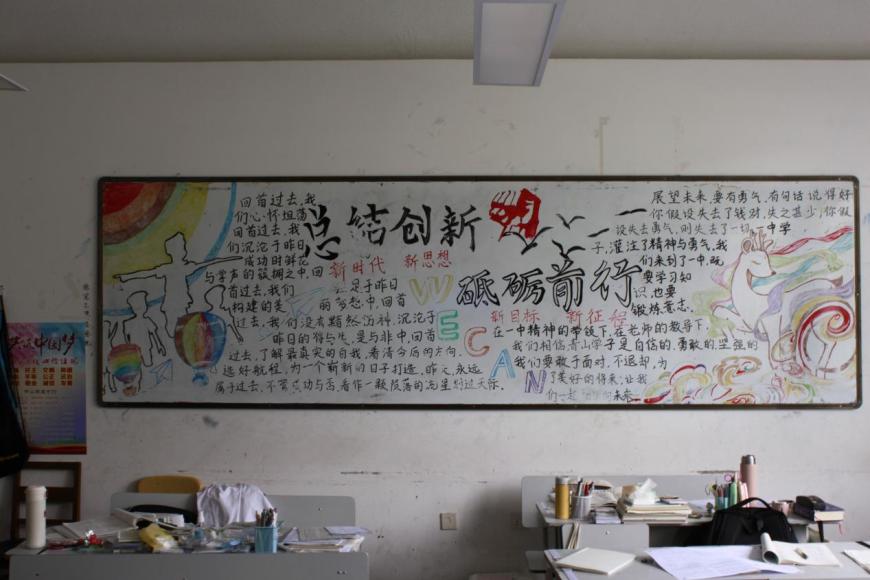 回首过去,我
们心怀坦荡
回首过去,我
们沉沦于昨日
成功时鲜花
与掌声的簇拥之中,回
首过去,我们
是于昨日
构建的美
丽梦想中,回首
过去,我们没有黯然伤神,沉沦于
昨日的得与失,是与非中,回首
过去,了解最真实的自我,看清今后的方向,
选好航程,为一个崭新的日子打造,昨天,永远
属于过去,不管成功与否,看作一颗陨落的流星划过天际.
总结创新
新时代 新思想
砥砺前行
新目标 新征程
WE CAN
展望未来,要有勇气,有句话说得好
你假设失去了钱财,失之甚少,你假
设失去勇气,则失去了一切,中学
子,灌注了精神与勇气,我
们来到了一中,既
要学习知
识,也要
锻炼意志.
在一中精神的带领下,在老师的教导下,
我们相信青山学子是自信的,勇敢的坚强的
我们要敢于面对,不退却,为
了美好的将来,让我
们一起 未来
中国梦